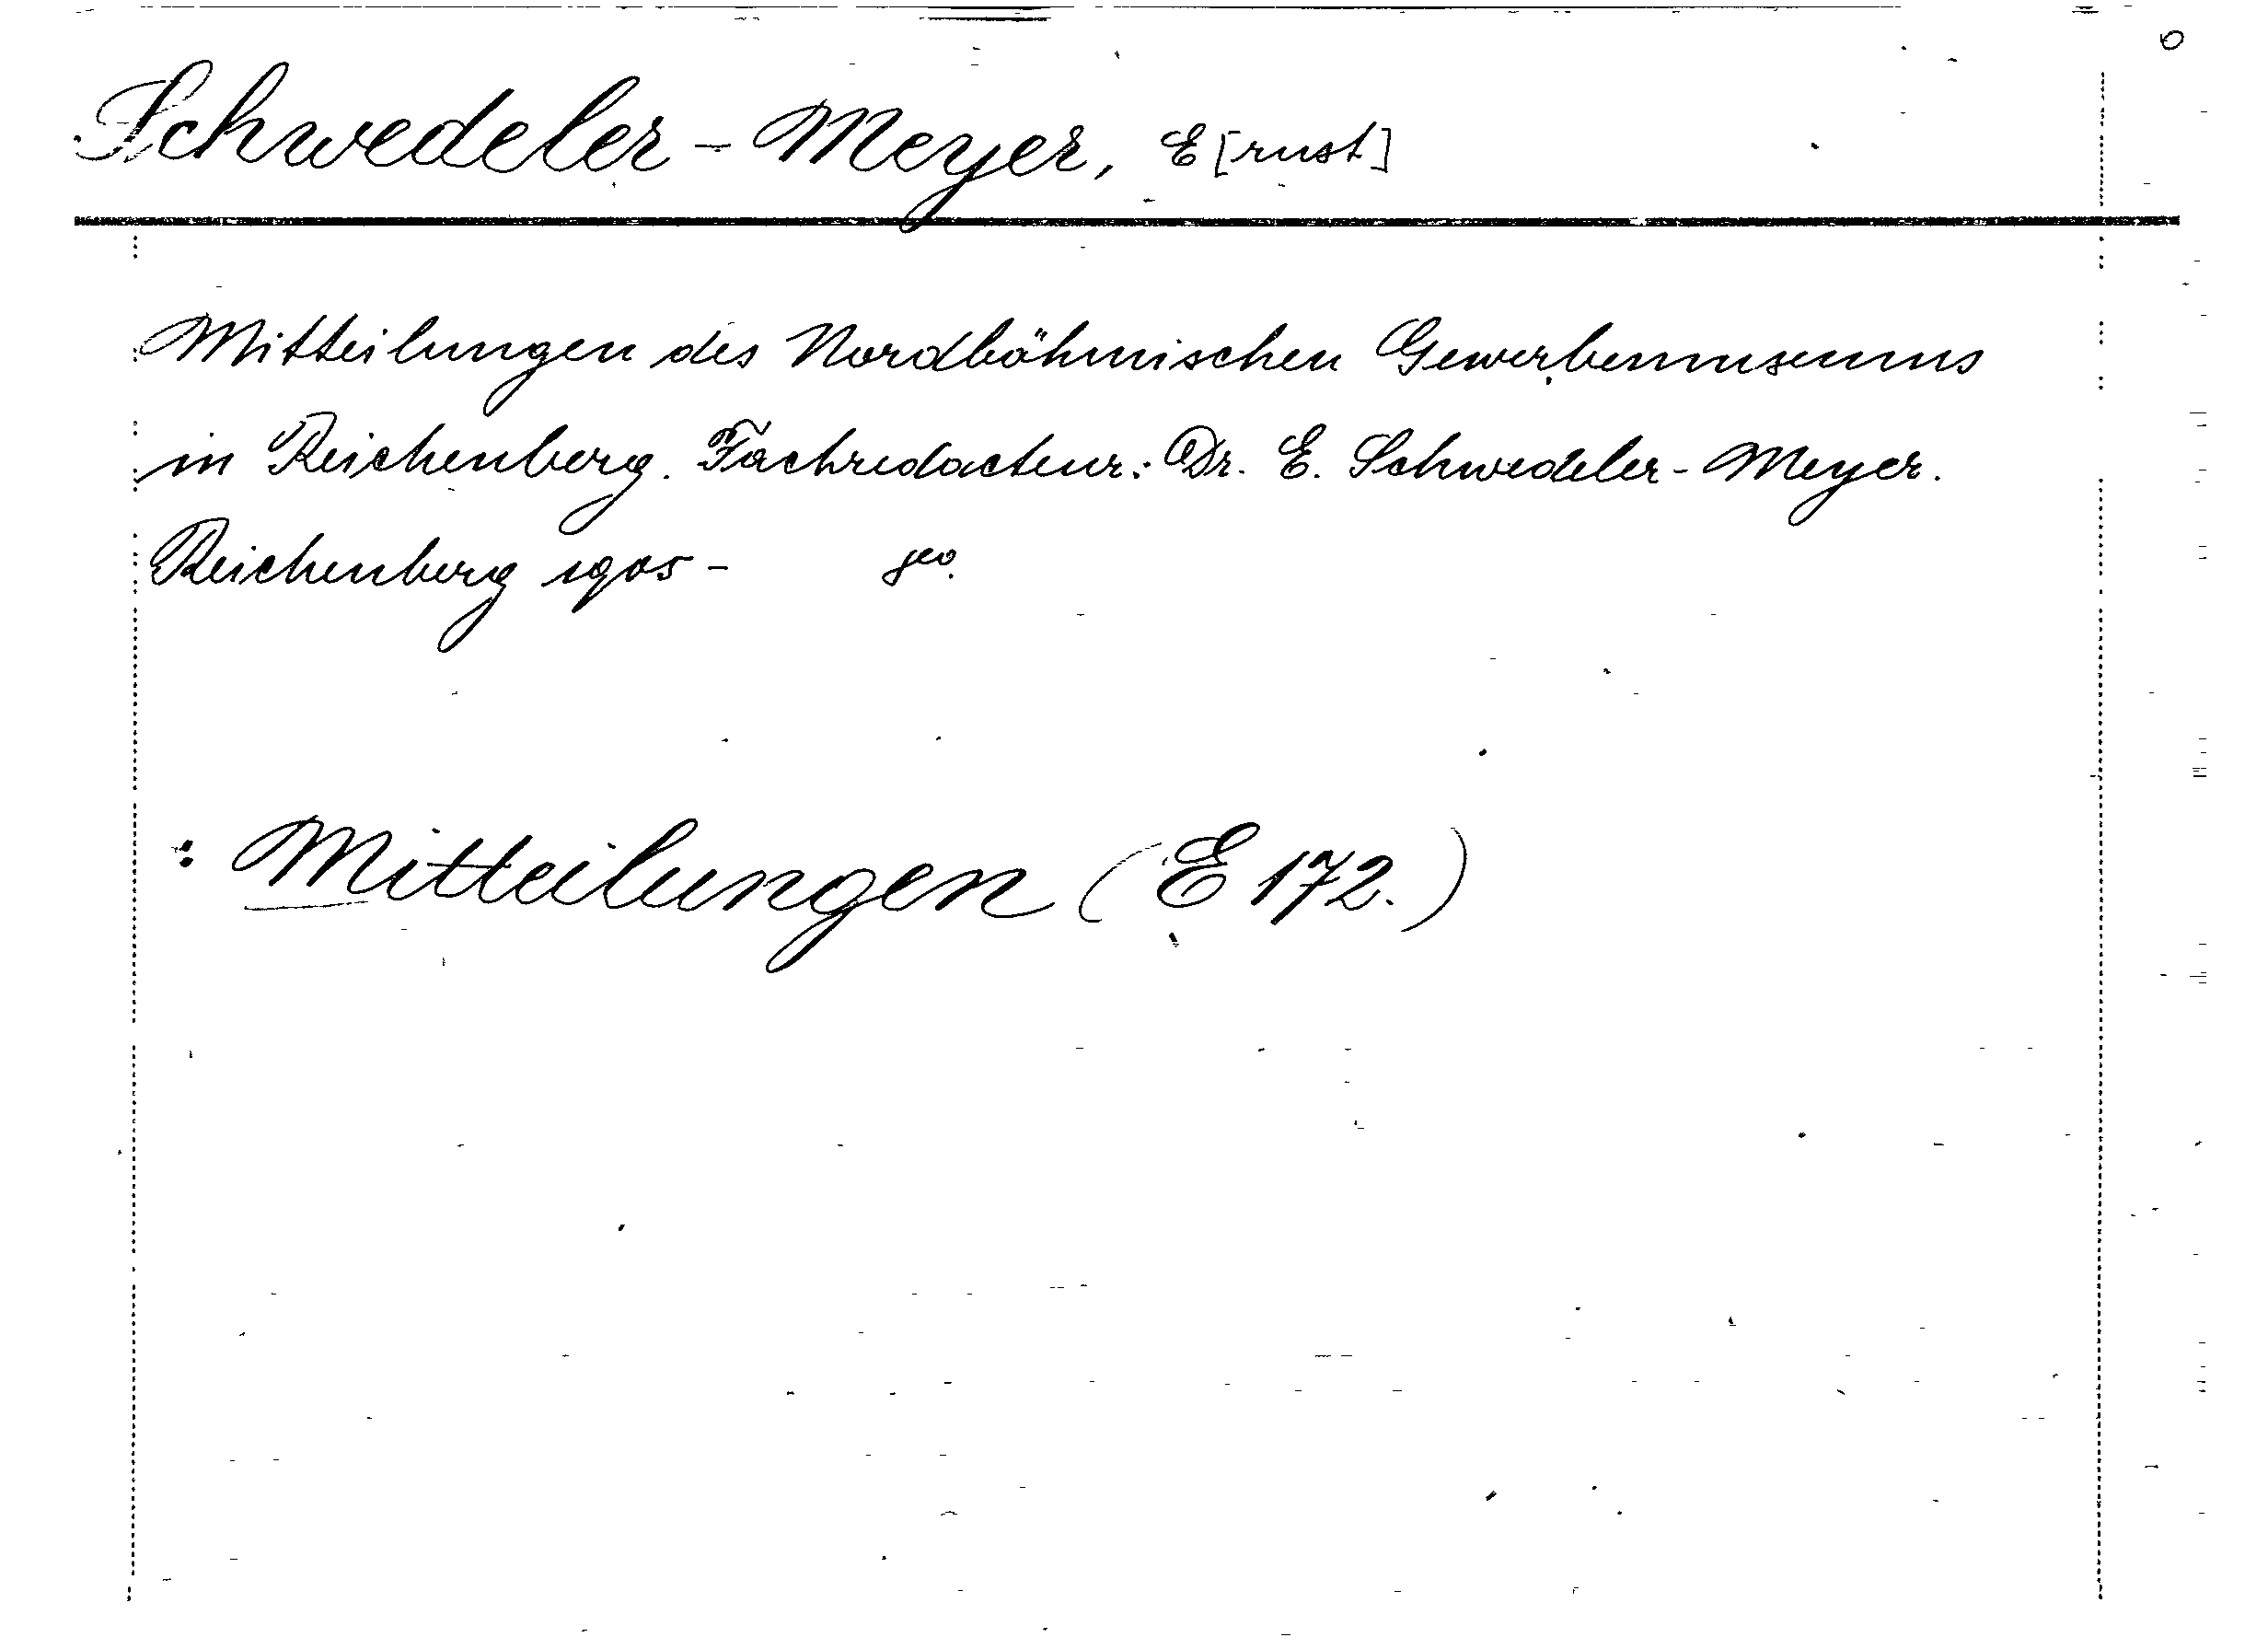 Schwedeler-Meyer, E[rnst]
Mitteilungen des Nordböhmischen Gewerbemuseums
in Reichenberg. Fachredacteur: Dr. E. Schwedeler-Meyer.
Reichenberg 1905-
: Mitteilungen (E 172.)